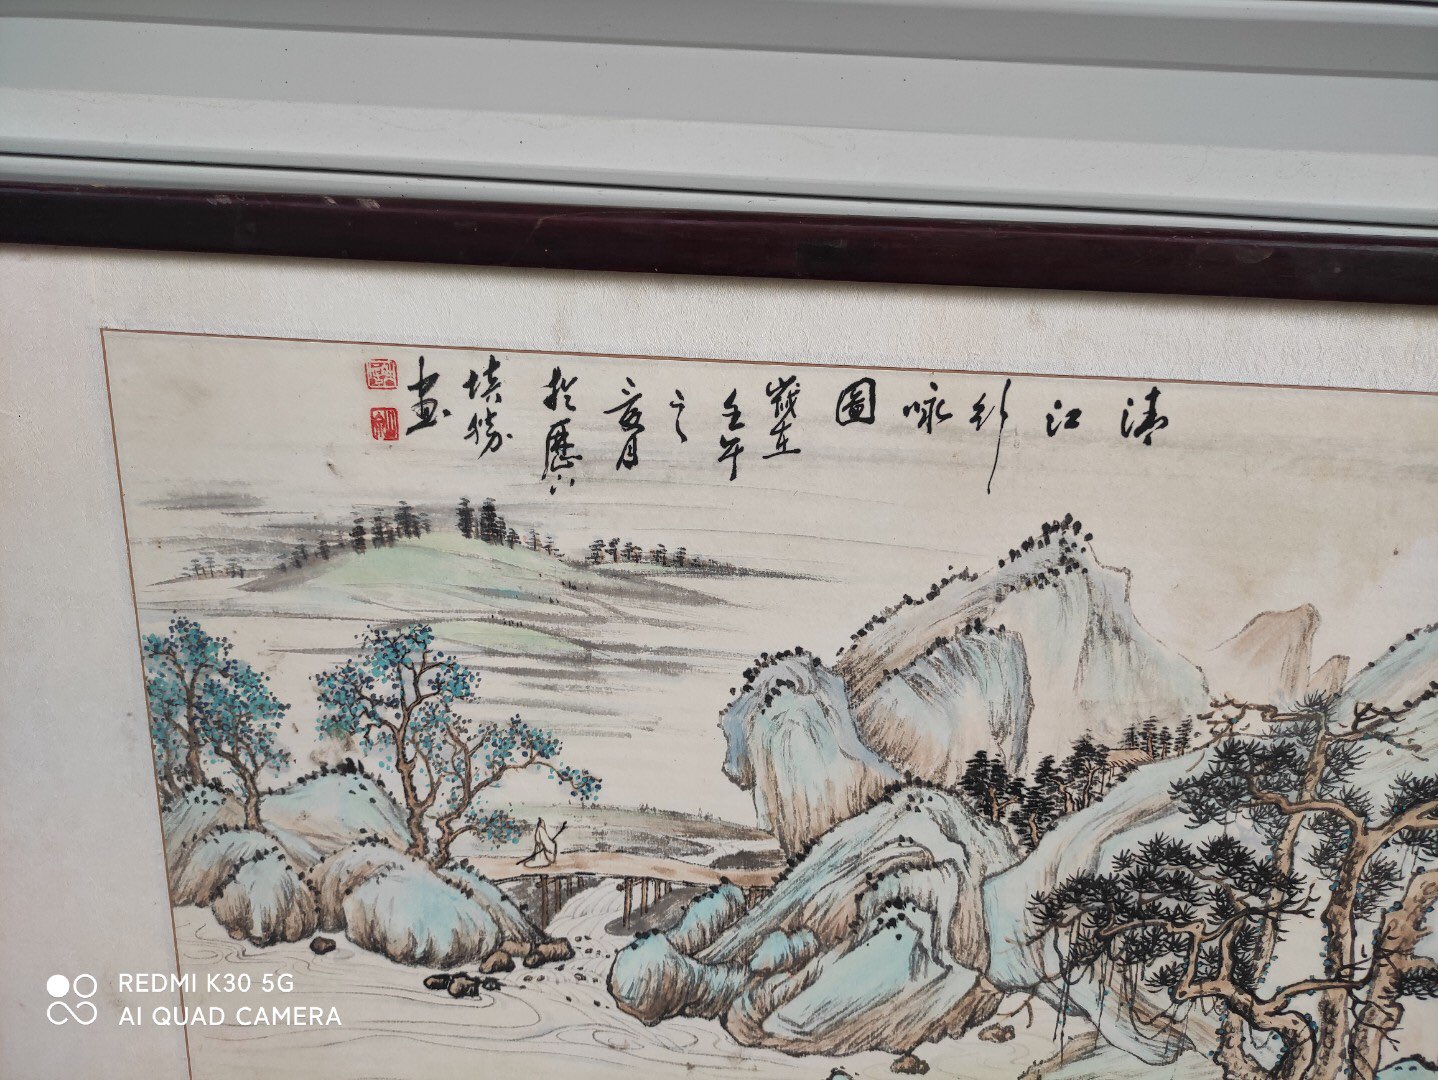 清
江
行
咏
圖
歲在
壬午
之
夏月
於歷下
埙勝
画
REDMI K30 5G
AI QUAD CAMERA